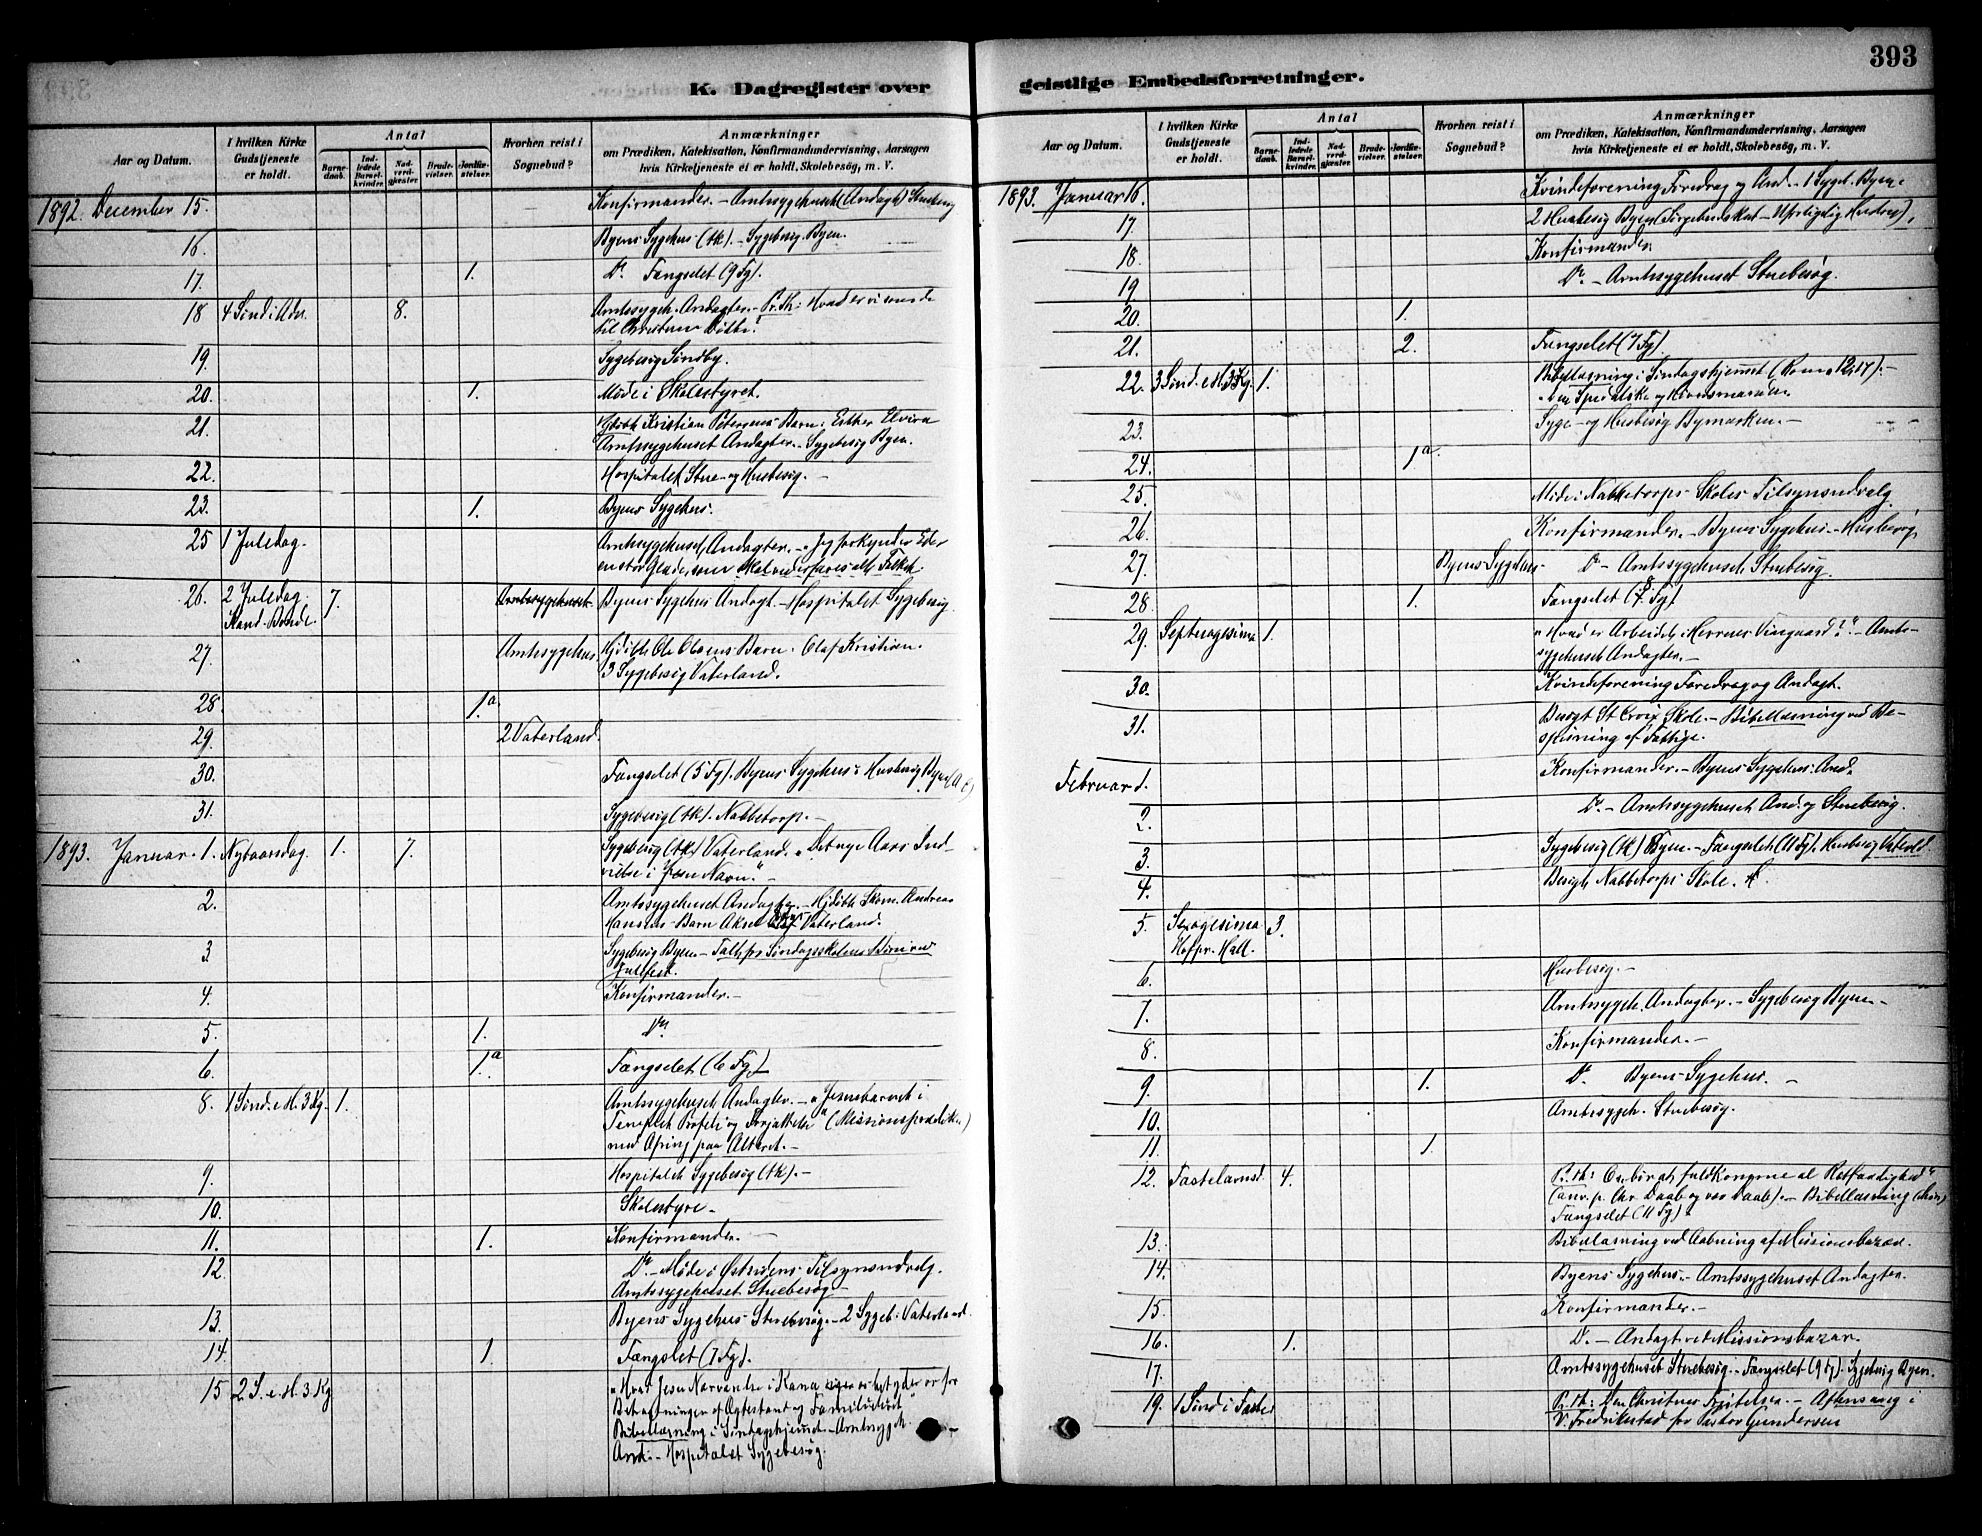 393
K. Dagregister over
geistlige Embedsforretninger.
Aar og Datum.
I hvilken Kirke Gudstjeneste er holdt.
Antal
Barne-daab.
Ind-ledede Barsel-kvinder.
Nad-verd-gjæster.
Brude-vielser.
Jordfæ-stelser.
Hvorhen reist i Sognebud?
Anmærkninger
om Prædiken, Katekisation, Konfirmandundervisning, Aarsagen
hvis Kirketjeneste ei er holdt, Skolebesög, m. V.
1892. December 15. Konfirmander. - Amtssygehuset (Andagt) Stuebesøg
16. Byens Sygehus (tk). - Sygebesøg Byen.
17. 1. Do. Fængselet (9 Fg).
18 4 Sønd i Adv. 8. Amtssygeh. Andagter. - Pr. Th: Hvad er vi
til Christum
19 Sygebesøg Sindby.
20. 1. Møde i Skolestyret.
21. Hjdøbt Kristian Petersens Barn: Esther Elvira
Amtssygehuset Andagter. - Sygebesøg Byen.
22. Hospitalet Stue- og Husbesøg. -
23. 1. Byens Sygehus.
25 1 Juledag. Amtssygehuset, Andagter. - "Jeg forkynder Eder
en stor Glæde, som skal vederfares alt Folket.
26. 2 Juledag. 7. Amtssygehuset. Byens Sygehus Andagt. - Hospitalet Sygebesøg.
Kand. Bonde.
27. Amtssygehus. Hjdøbt Ole Olsens Barn: Olaf Kristian.
3 Sygebesøg Vaterland.
28 1a.
29. 2 Vaterland.
30. Fængselet (5 Fg). Byens Sygehus. Husbesøg Byen
31. Sygebesøg (tk). Nabbetorp. -
1893. Januar. 1. Nytaarsdag. 1. 7. Sygebesøg (tk) Vaterland. "Det nye Aars Ind-
vielse i Jesu Navn." -
2. Amtssygehuset Andagter. - Hjdøbt Skom. Andreas
Hansens Barn Aksel Vaterland.
3 Sygebesøg Byen. - Talt for Søndagsskolens Børn ved
Julefest.
4. Konfirmander. -
5. 1. Do.
6. 1a. Fængselet (6 Fg)
8. 1 Sønd. e. H. 3 Kg. 1. Amtssygehuset Andagter. - "Jesusbarnet i
Templet Profeti og Forjættelse" (Missionsprædiken)
med Ofring paa Alteret. -
9. Hospitalet Sygebesøg (tk). -
10. Skolestyre. -
11. 1. Konfirmander. -
12. Do. - Møde i Østsidens Tilsynsudvalg.
Amtssygehuset Stuebesøg -
13. Byens Sygehus Stuebesøg. - 2 Sygeb. Vaterland.
14. 1. Fængslet (7 Fg).
15 2 S. e. H. 3 Kg "Hvad Jesu Nærværelse i Kana betyder for
Betragtningen af Ægtestand og Familielivet"
Bibellæsning i Søndagshjemmet. - Amtssygeh.
And. - Hospitalet Sygebesøg.
Aar og Datum.
I hvilken Kirke Gudstjeneste er holdt.
Antal
Barne-daab.
Ind-ledede Barsel-kvinder.
Nad-verd-gjæster.
Brude-vielser.
Jordfæ-stelser.
Hvorhen reist i Sognebud?
Anmærkninger
om Prædiken, Katekisation, Konfirmandundervisning, Aarsagen
hvis Kirketjeneste ei er holdt, Skolebesög, m. V.
1893. Januar 16. Kvindeforening Foredrag og And. - 1 Sygeb. Byen.
17. 2 Husbesøg Byen
18. Konfirmander.
19 Do. - Amtssygehuset Stuebesøg.
20. 1.
21. 2. Fængselet (7 Fg).
22. 3 Sønd. e. H. 3 Kg. 1. Bibellæsning i Søndagshjemmet (Rom. 12, 17). -
Den Spedalske og Høvedsmanden.
23. Syge- og Husbesøg Bymarken. -
24. 1a.
25. Møde i Nabbetorps Skoles Tilsynsudvalg
26. Konfirmander. - Byens Sygehus. - Husbesøg.
27. Byens Sygehus. Do. - Amtssygehuset Stuebesøg.
28. 1. Fængselet (8 Fg)
29. Septuagesima 1. "Hvad er Arbeidet i Herrens Vingaard?" - Amts-
sygehuset Andagter. -
30. Kvindeforening Foredrag og Andagt.
31. Besøgt St Croix Skole. - Bibellæsning ved Be-
spisning af Fattige.
Februar 1. Konfirmander. - Byens Sygehus: And.
2. Do. - Amtssygehuset And. og Stuebesøg.
3. Sygebesøg (tk) Byen. - Fængselet (11 Fg). Husbesøg Vaterld.
4. Besøgt Nabbetorps Skole.
5. Sexagesima 3.
Hofpr. Hall.
6. Husbesøg. -
7. Amtssygeh. Andagter. - Sygebesøg Byen. -
8. Konfirmander. -
9. 1. Do. Byens Sygehus. -
10. Amtssygeh. Stuebesøg.
11. 1.
12. Fastelavnsd. 4. Pr. Th: fuldkomme al Retfærdighed"
(anv. p. Chr. Daab og vor Daab). - Bibellæsning
Fængselet (11 Fg).
13. Bibellæsning ved Aabning af Missionsbazar.
14. Byens Sygehus. - Amtssygehuset Andagter.
15. Konfirmander. -
16. 1. Do. - Andagt ved Missionsbazar.
17. Amtssygehuset Stuebesøg. - Fængselet (9 Fg). Sygebesøg Byen.
19. 1 Sønd i Faste Pr. Th: Den Christnes Fristelser. - Aftensang i
V. Fredrikstad for Pastor Gundersen